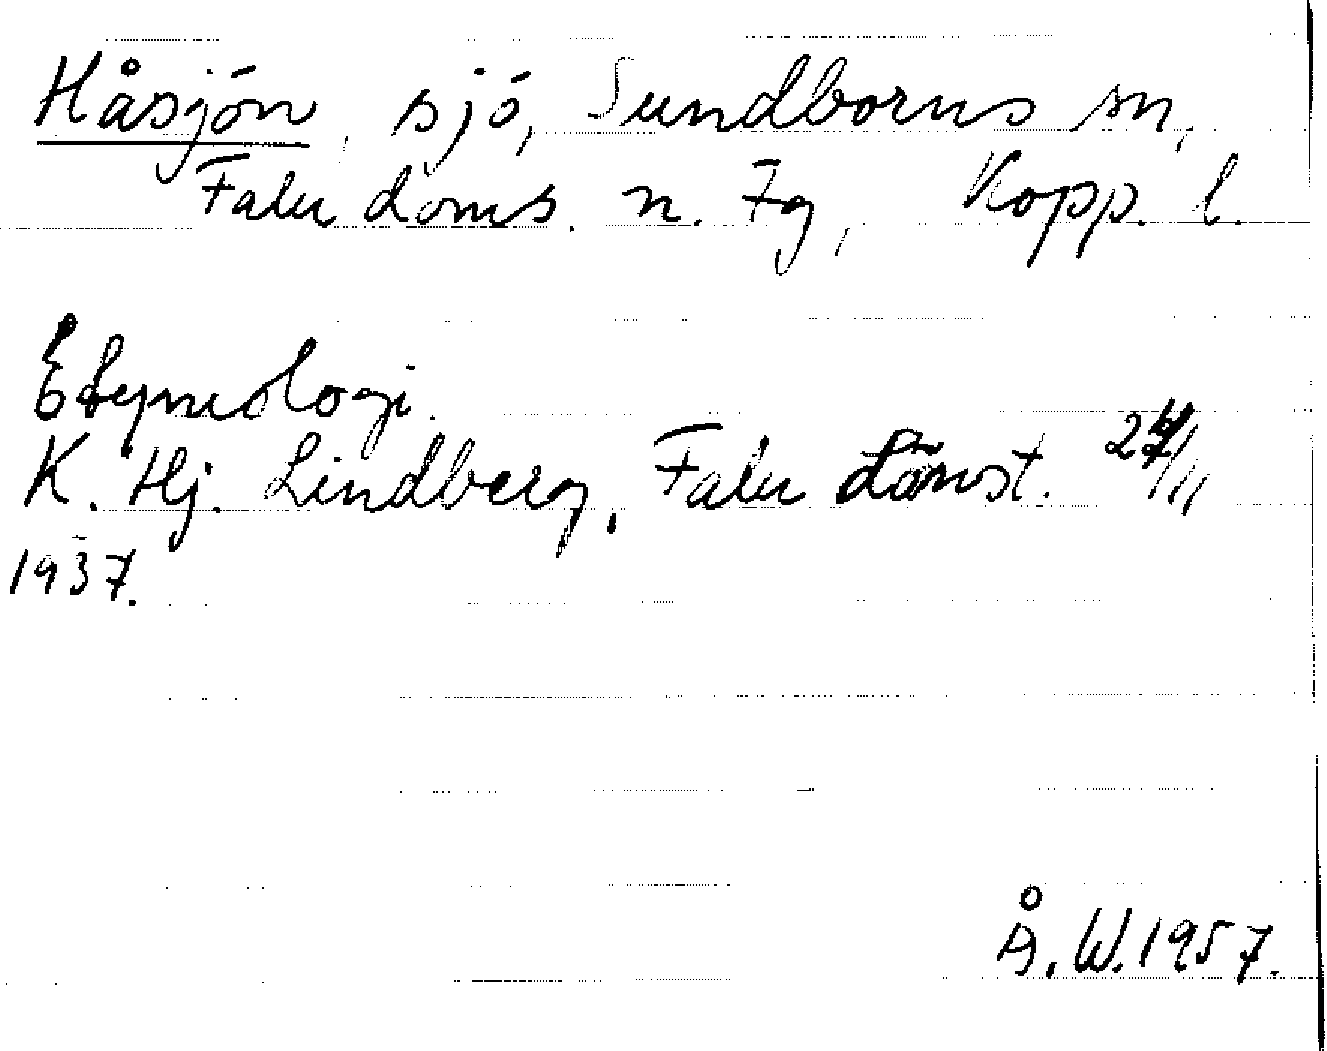 Håsjön, sjö, Sundborns sn,
Falu doms. n. Tg, Kopp. l.
Etymologi.
K. Hj. Lindberg, Falu länst. /11
1937.
Å. W. 1957.